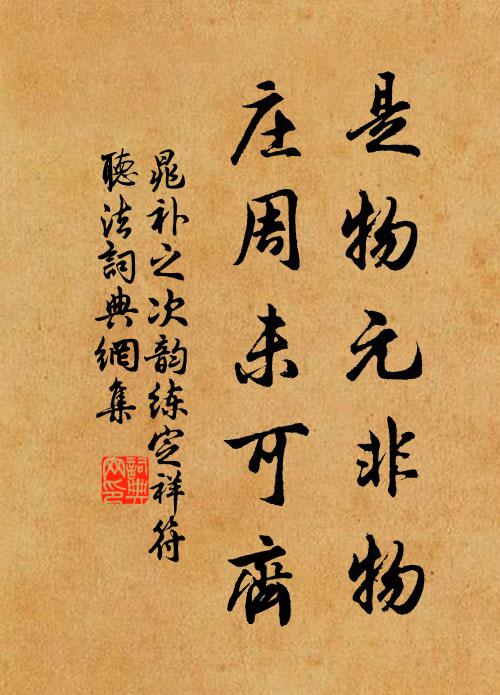 是物元非物
庄周未可齊
晁补之次韵练定祥符
聽法詞典網集
詞典
网印